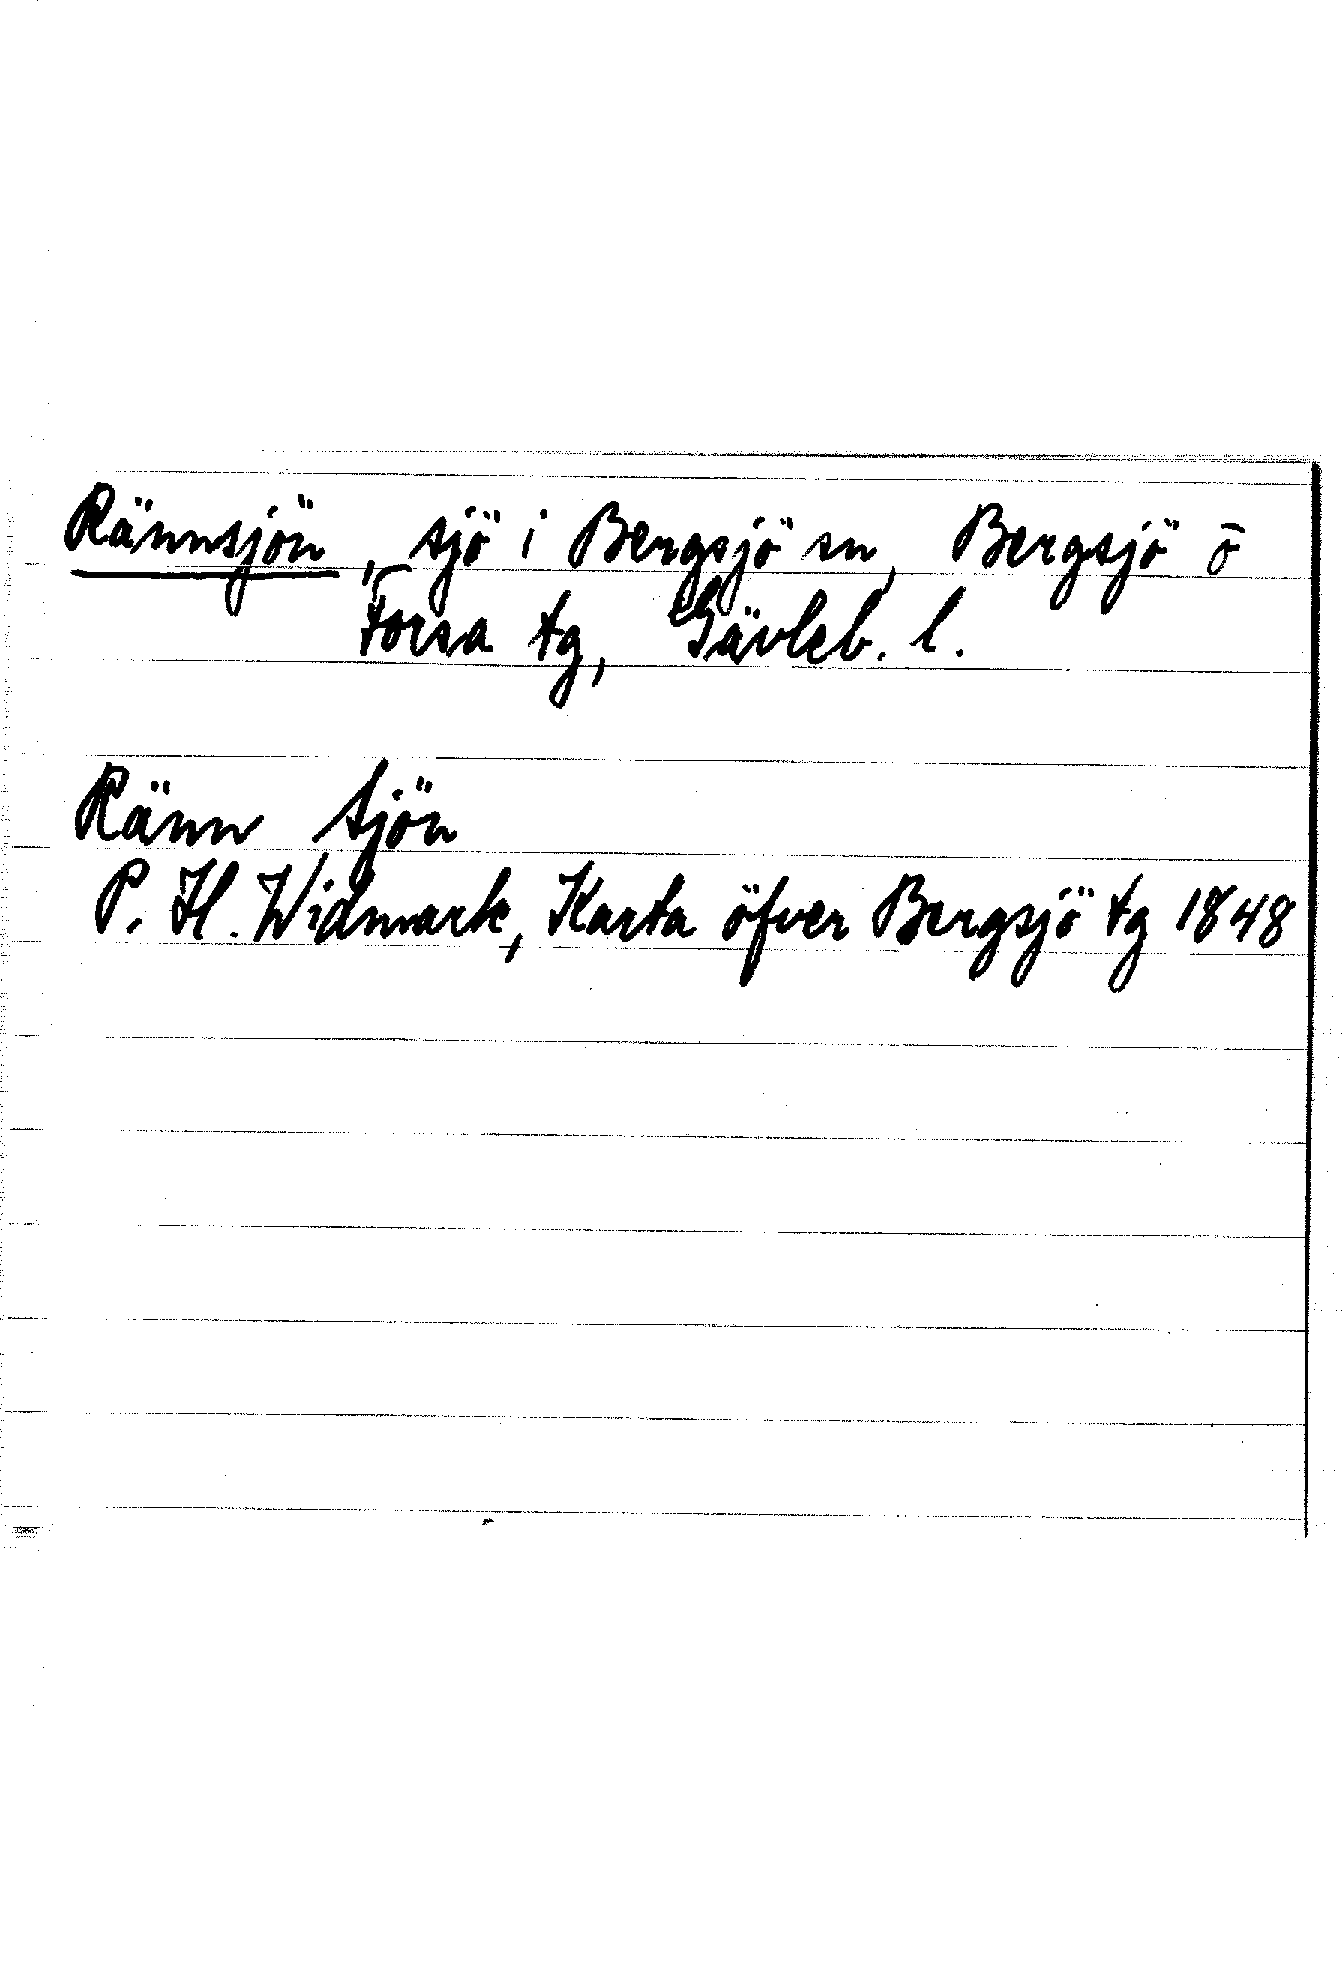 Rännsjön, sjö i Bergsjö sn, Bergsjö o
Forsa tg, Gävleb. l.
Ränn sjön
P. H. Widmark, Karta öfver Bergsjö tg 1848